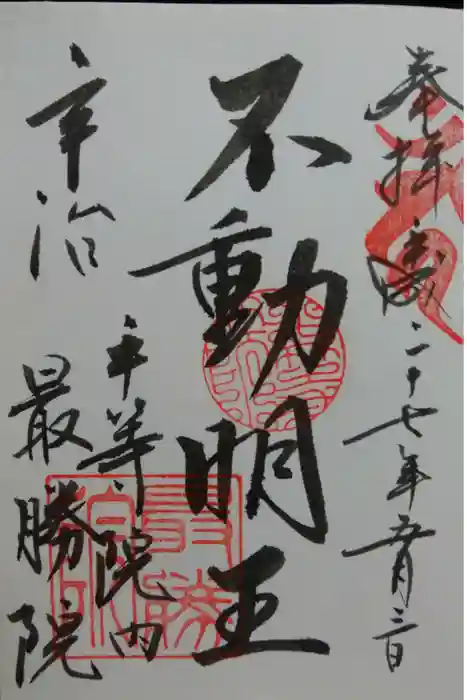 奉拝 平成二十七年五月三日
不動明王
宇治
平等院内
最勝院